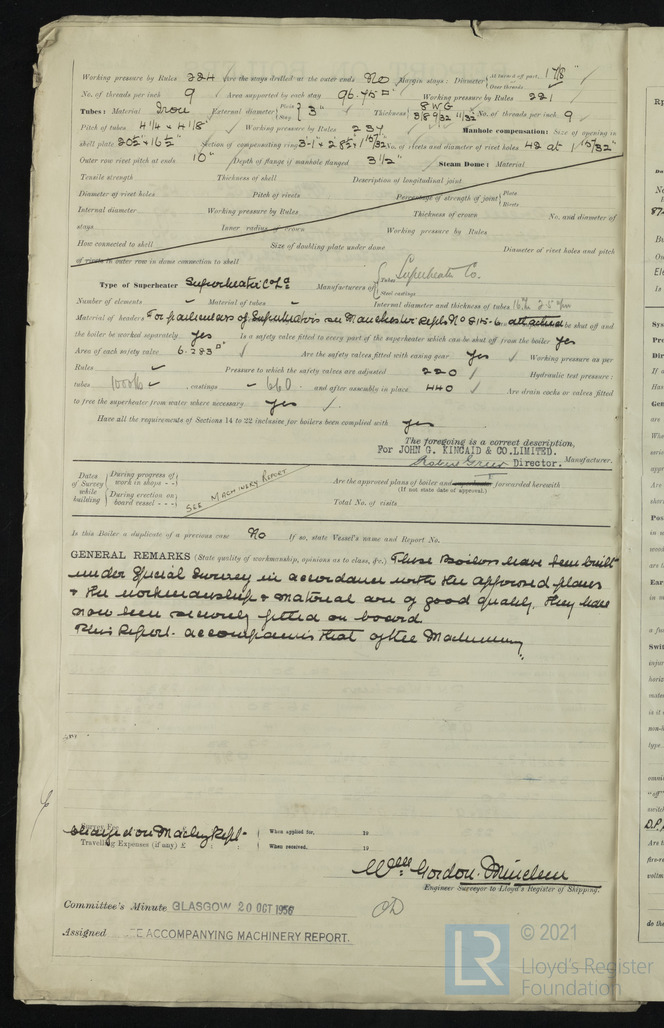 Working pressure by Rules 224 Are the stays drilled at the outer ends No Margin stays: Diameter { At turned off part, 1 7/8" Over threads
No. of threads per inch 9 Area supported by each stay 96.75 □" Working pressure by Rules 221
Tubes: Material Iron External diameter { Plain Stay 3" Thickness { 8 WG 5/16 9/32 11/32 No. of threads per inch 9
Pitch of tubes 4 1/4 × 4 1/8" Working pressure by Rules 234 Manhole compensation: Size of opening in
shell plate 20½ × 16½" Section of compensating ring No. of rivets and diameter of rivet holes 42 at 1 15/32"
Outer row rivet pitch at ends 10" Depth of flange if manhole flanged 3½" Steam Dome: Material
Tensile strength Thickness of shell Description of longitudinal joint
Diameter of rivet holes Pitch of rivets Percentage of strength of joint { Plate Rivets
Internal diameter Working pressure by Rules Thickness of crown No. and diameter of
stays Inner radius of crown Working pressure by Rules
How connected to shell Size of doubling plate under dome Diameter of rivet holes and pitch
of rivets in outer row in dome connection to shell
Type of Superheater Superheater Co Ld Manufacturers of { Tubes Steel castings Superheater Co.
Number of elements Material of tubes Internal diameter and thickness of tubes
Material of headers For particulars of Superheaters see Manchester Repts No attached be shut off and
the boiler be worked separately yes Is a safety valve fitted to every part of the superheater which can be shut off from the boiler yes
Area of each safety valve 6.283 □" Are the safety valves fitted with easing gear yes Working pressure as per
Rules Pressure to which the safety valves are adjusted 220 Hydraulic test pressure:
tubes 1000 lb castings 660 and after assembly in place 440 Are drain cocks or valves fitted
to free the superheater from water where necessary yes
Have all the requirements of Sections 14 to 22 inclusive for boilers been complied with yes
The foregoing is a correct description,
For JOHN G. KINCAID & CO. LIMITED.
Director. Manufacturer.
Dates of Survey while building { During progress of work in shops - - { During erection on board vessel - - - SEE MACHINERY REPORT
Are the approved plans of boiler and superheater forwarded herewith
(If not state date of approval.)
Total No. of visits
Is this Boiler a duplicate of a previous case No If so, state Vessel's name and Report No.
GENERAL REMARKS (State quality of workmanship, opinions as to class, &c.) These Boilers have been built
under Special Survey in accordance with the approved plans
& the workmanship & material are of good quality. They have
now been securely fitted on board.
This Report accompanies that of the Machinery.
Survey Fee
charged on Machy Rept.
Travelling Expenses (if any) £
When applied for, 19
When received, 19
Wm Gordon
Engineer Surveyor to Lloyd's Register of Shipping.
Committee's Minute GLASGOW 20 OCT 1936
Assigned SEE ACCOMPANYING MACHINERY REPORT.
LR © 2021
Lloyd's Register
Foundation